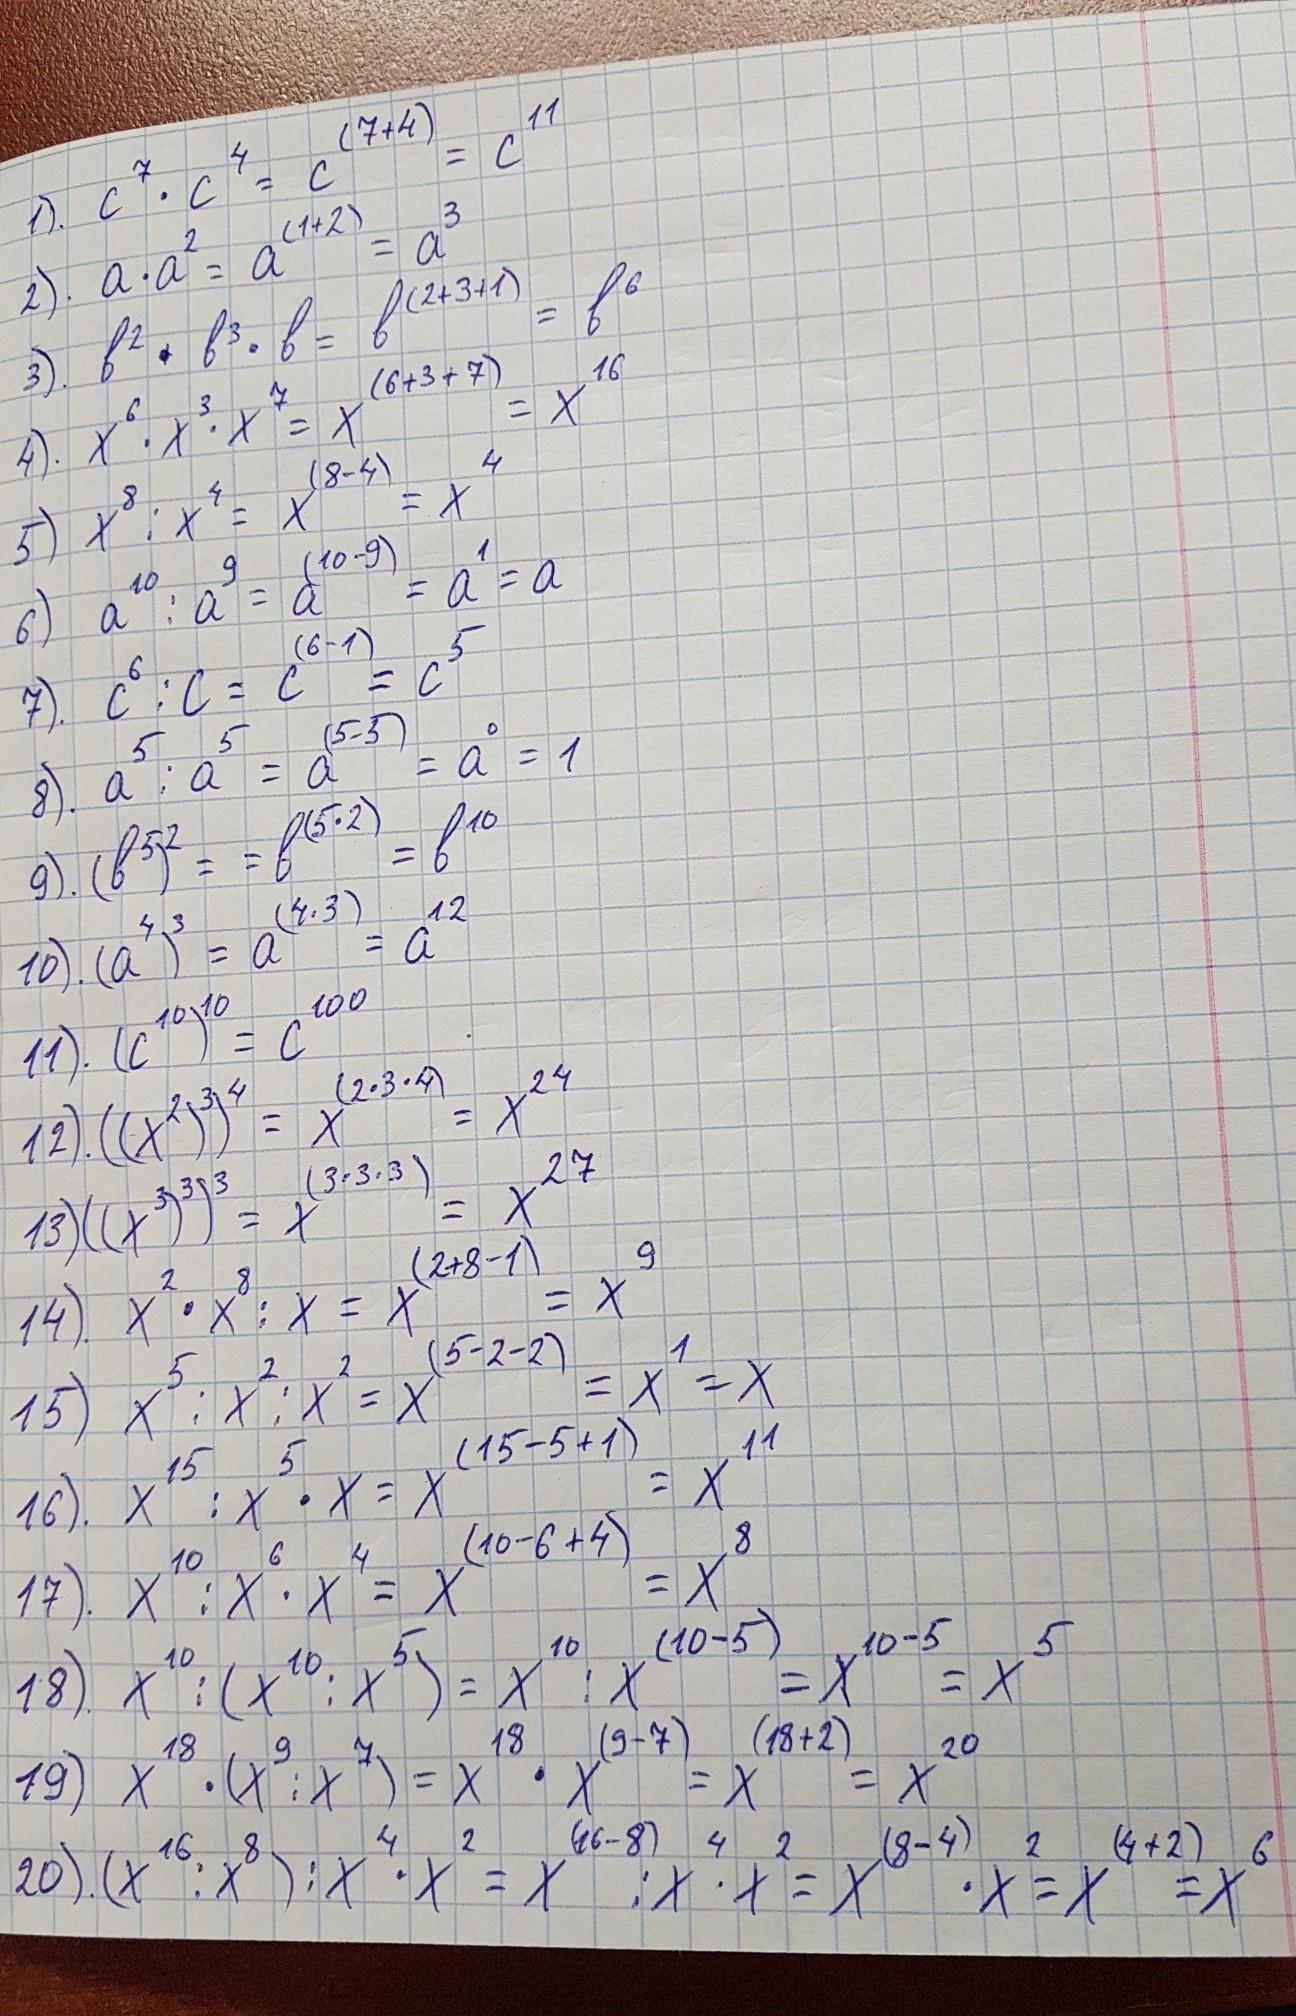 1). c⁷ · c⁴ = c⁽⁷⁺⁴⁾ = c¹¹
2). a · a² = a⁽¹⁺²⁾ = a³
3). b² · b³ · b = b⁽²⁺³⁺¹⁾ = b⁶
4). x⁶ · x³ · x⁷ = x⁽⁶⁺³⁺⁷⁾ = x¹⁶
5) x⁸ : x⁴ = x⁽⁸⁻⁴⁾ = x⁴
6) a¹⁰ : a⁹ = a⁽¹⁰⁻⁹⁾ = a¹ = a
7). c⁶ : c = c⁽⁶⁻¹⁾ = c⁵
8). a⁵ : a⁵ = a⁽⁵⁻⁵⁾ = a⁰ = 1
9). (b⁵)² = = b^(5·2) = b¹⁰
10). (a⁴)³ = a^(4·3) = a¹²
11). (c¹⁰)¹⁰ = c¹⁰⁰
12). ((x²)³)⁴ = x^(2·3·4) = x²⁴
13) ((x³)³)³ = x^(3·3·3) = x²⁷
14). x² · x⁸ : x = x⁽²⁺⁸⁻¹⁾ = x⁹
15) x⁵ : x² : x² = x⁽⁵⁻²⁻²⁾ = x¹ = x
16). x¹⁵ : x⁵ · x = x⁽¹⁵⁻⁵⁺¹⁾ = x¹¹
17). x¹⁰ : x⁶ · x⁴ = x⁽¹⁰⁻⁶⁺⁴⁾ = x⁸
18). x¹⁰ : (x¹⁰ : x⁵) = x¹⁰ : x⁽¹⁰⁻⁵⁾ = x¹⁰⁻⁵ = x⁵
19) x¹⁸ · (x⁹ : x⁷) = x¹⁸ · x⁽⁹⁻⁷⁾ = x⁽¹⁸⁺²⁾ = x²⁰
20). (x¹⁶ : x⁸) : x⁴ · x² = x⁽¹⁶⁻⁸⁾ : x⁴ · x² = x⁽⁸⁻⁴⁾ · x² = x⁽⁴⁺²⁾ = x⁶